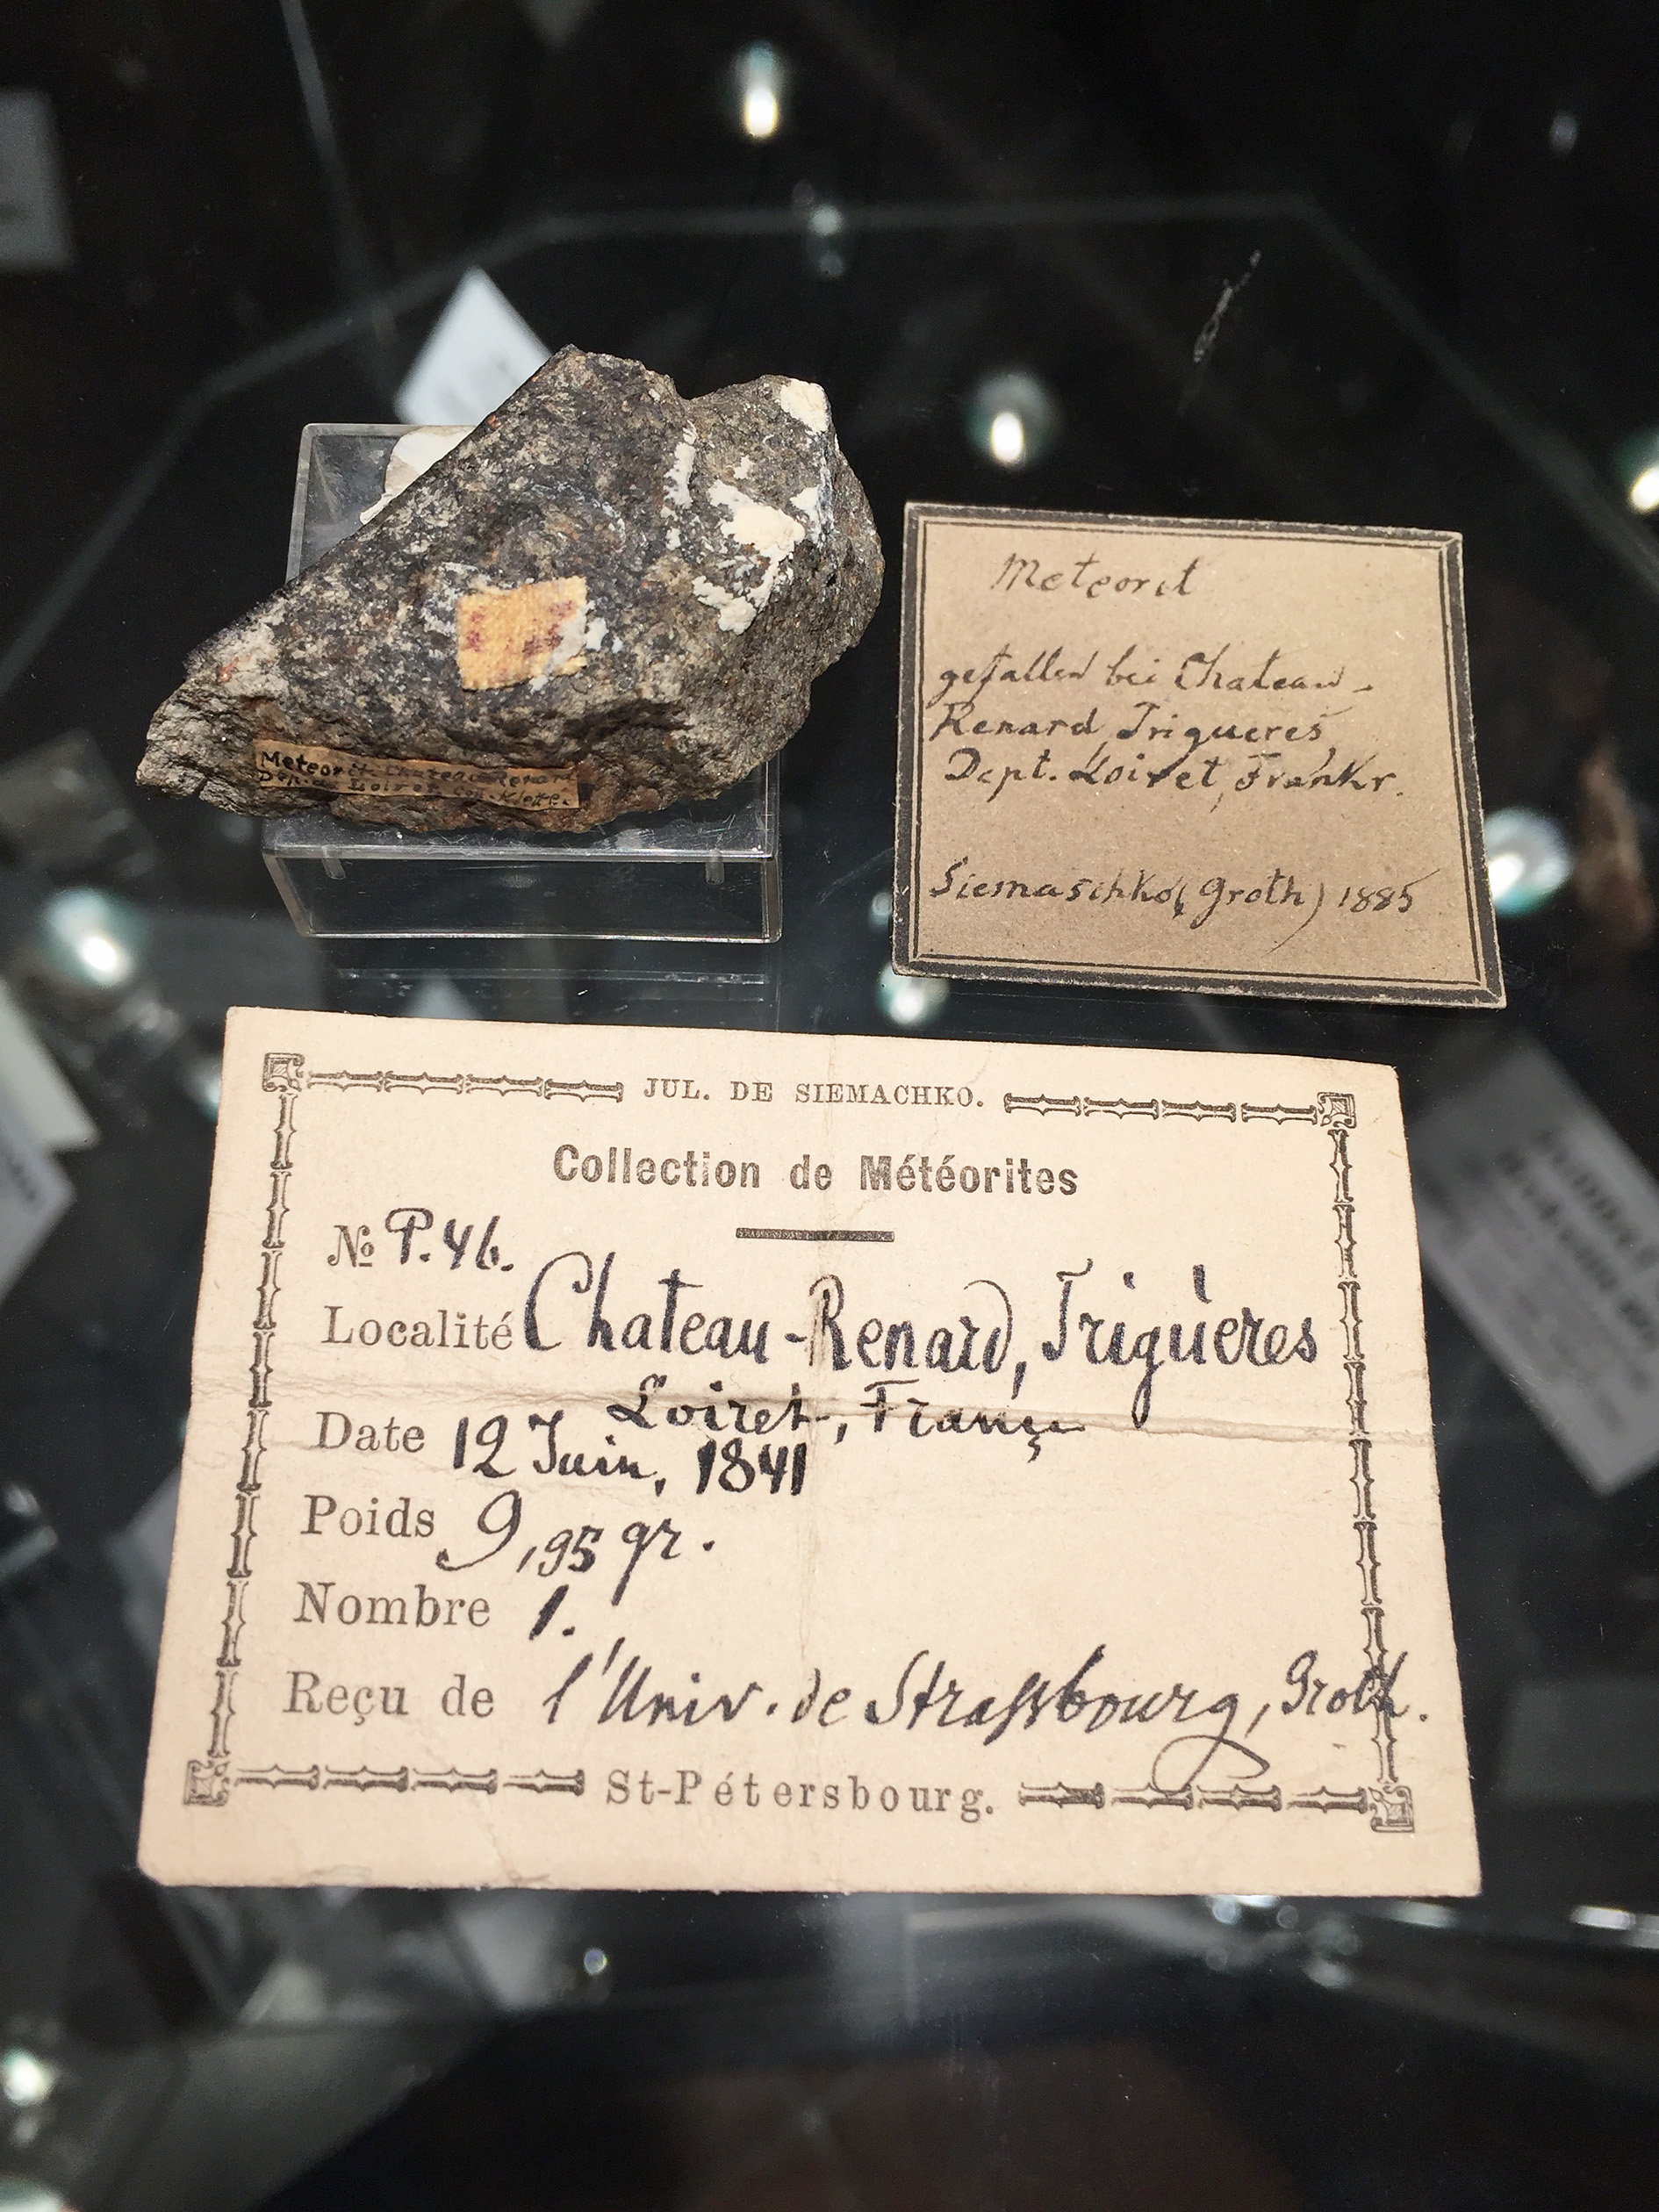 Meteorit Chateau Renard
Dep. Loiret
Meteorit
gefallen bei Chateau-
Renard Trigueres
Dept. Loiret, Frankr.
Siemaschko (Groth) 1885
JUL. DE SIEMACHKO.
Collection de Météorites
№ P.46.
Localité Chateau-Renard, Triguères
Loiret, Franç
Date 12 Juin, 1841
Poids 9,95 gr.
Nombre 1.
Reçu de l'Univ. de Strassbourg, Groth.
St-Pétersbourg.